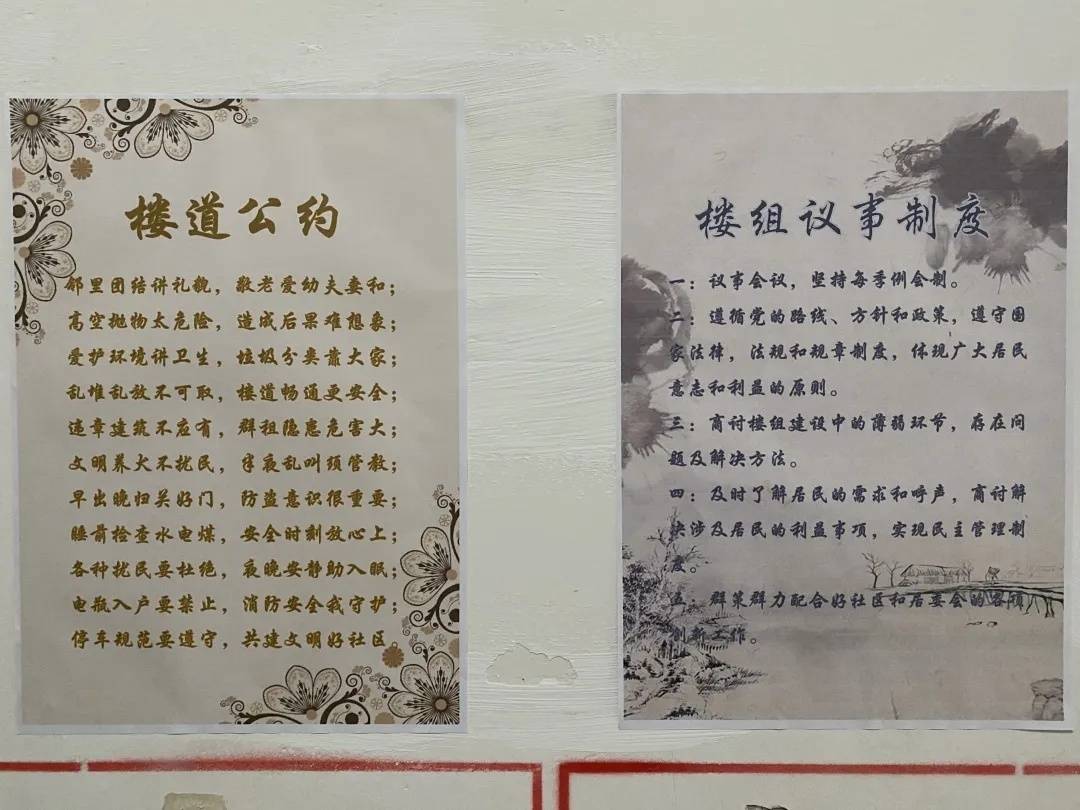 楼道公约
邻里团结讲礼貌，敬老爱幼夫妻和；
高空抛物太危险，造成后果难想象；
爱护环境讲卫生，垃圾分类靠大家；
乱堆乱放不可取，楼道畅通更安全；
违章建筑不应有，群租隐患危害大；
文明养犬不扰民，半夜乱叫须管教；
早出晚归关好门，防盗意识很重要；
睡前检查水电煤，安全时刻放心上；
各种扰民要杜绝，夜晚安静助入眠；
电瓶入户要禁止，消防安全我守护；
停车规范要遵守，共建文明好社区。
楼组议事制度
一：议事会议，坚持每季例会制。
二：遵循党的路线、方针和政策，遵守国
家法律，法规和规章制度，体现广大居民
意志和利益的原则。
三：商讨楼组建设中的薄弱环节，存在问
题及解决方法。
四：及时了解居民的需求和呼声，商讨解
决涉及居民的利益事项，实现民主管理制
度。
五：群策群力配合好社区和居委会的各项
创新工作。